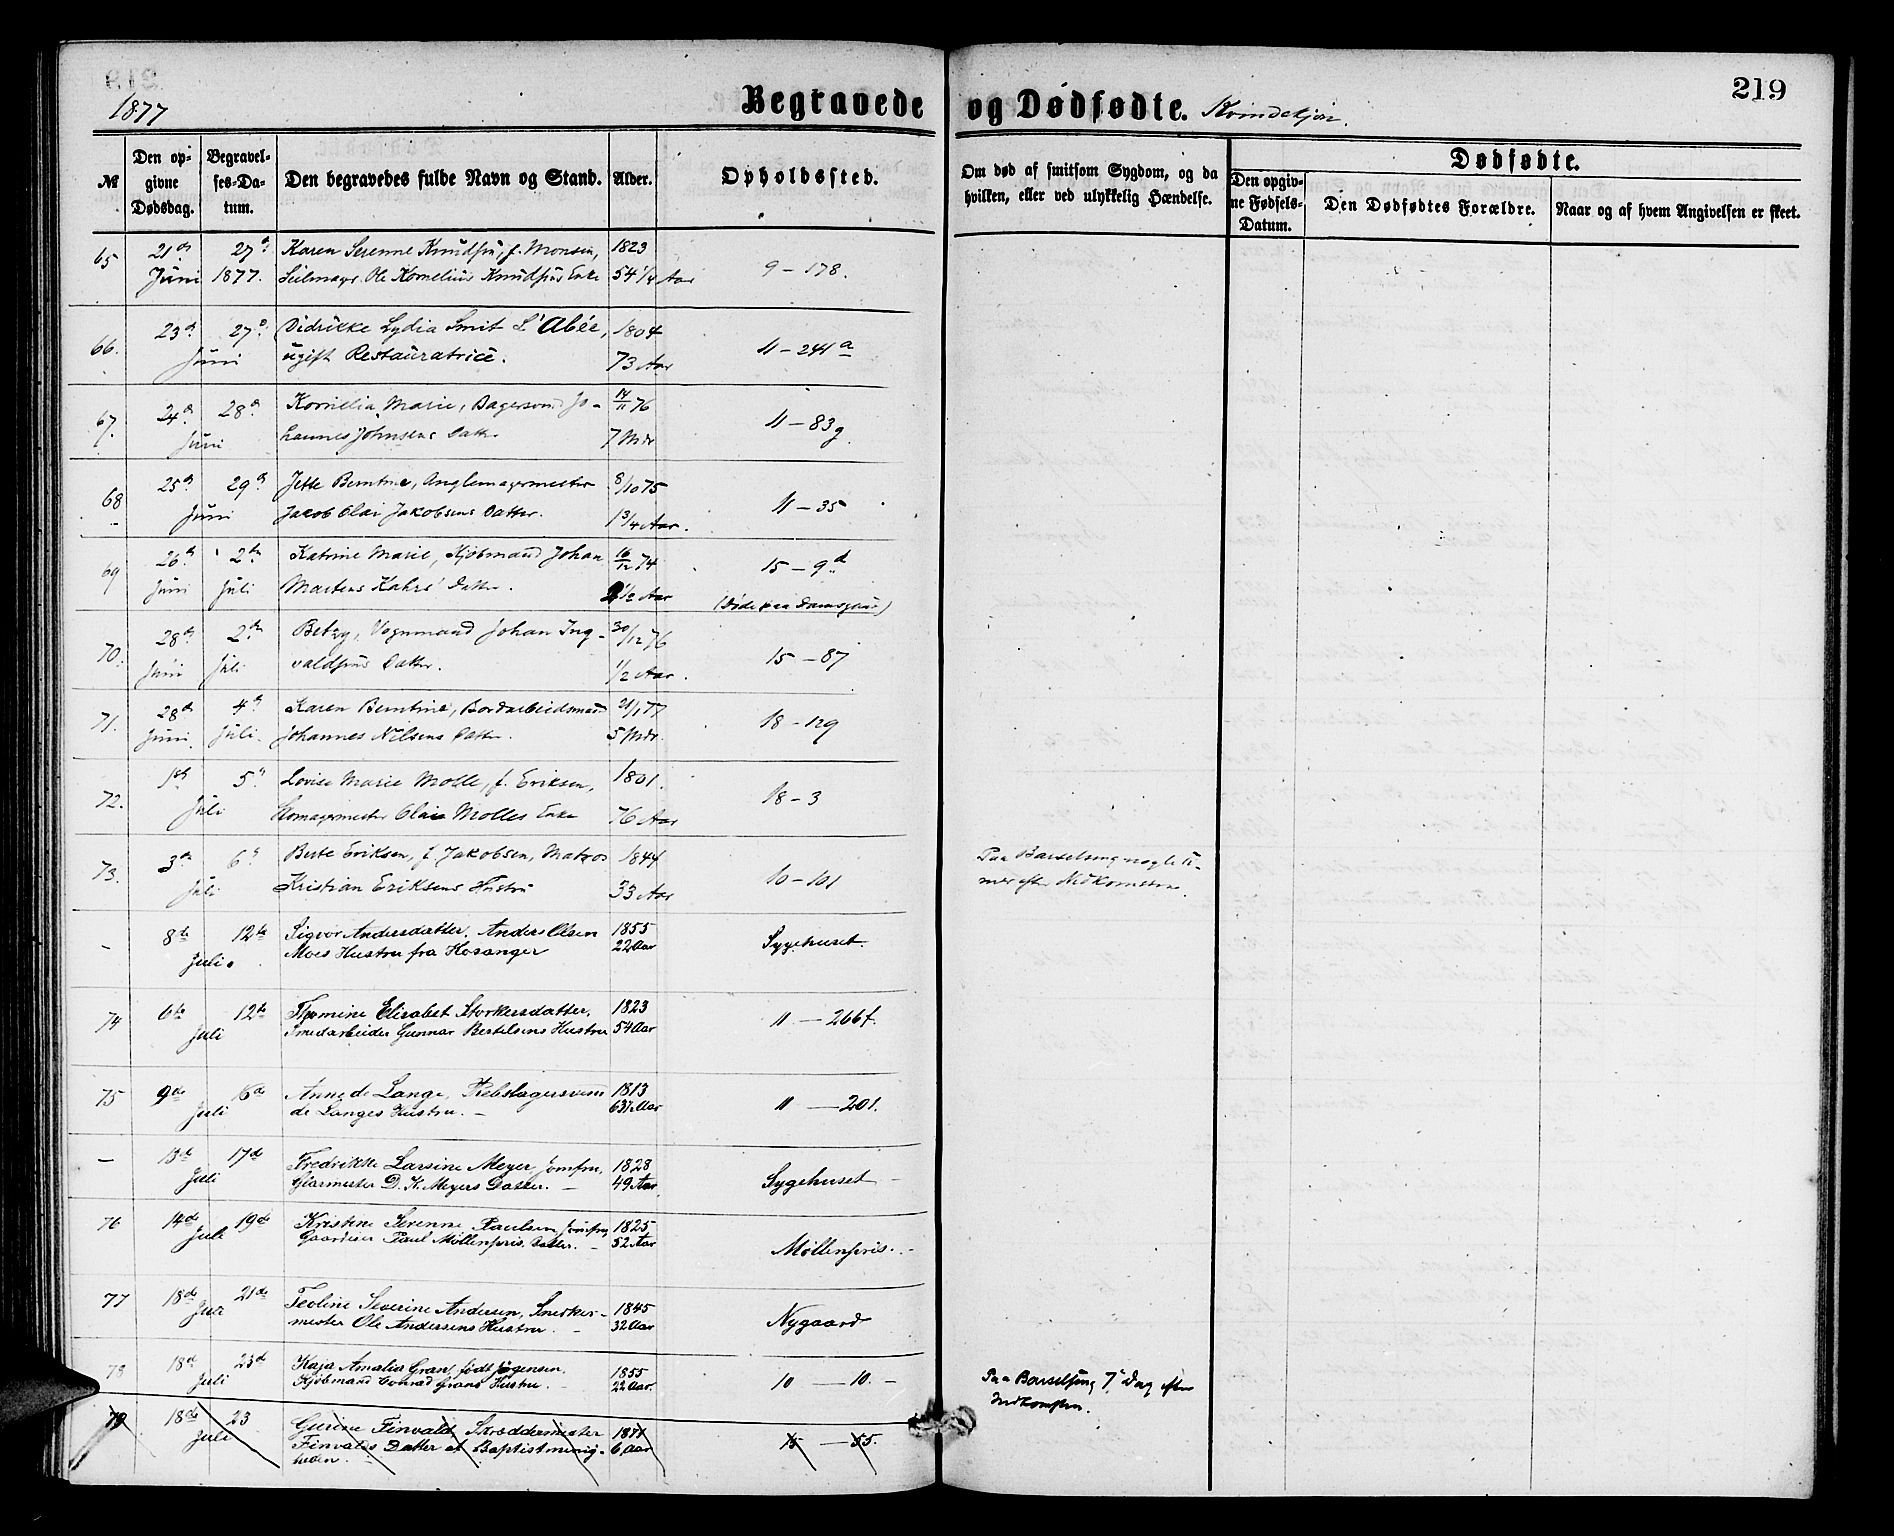 219
1877
Begravede og Dødfødte. Kvindekjøn.
№
Den opgivne Dødsdag.
Begravelses-Datum.
Den begravedes fulde Navn og Stand.
Alder.
Opholdssted.
Om død af smitsom Sygdom, og da hvilken, eller ved ulykkelig Hændelse.
Dødfødte.
Den opgivne Fødsels-Datum.
Den Dødfødtes Forældre.
Naar og af hvem Angivelsen er skeet.
65 21de 27de Karen Serenne Knudsen, f. Monsen, 1823
Juni 1877. Seilmager Ole Kornelius Knudsens Enke 54 1/4 Aar 9 – 178.
66. 23de 27de Didrikke Lydia Smit L'Abée, 1804
Juni ugift Restauratrice. 73 Aar 11 – 241 a
67. 24de 28de Kornelia Marie, Bagersvend Jo- 14/11 76
Juni hannes Johnsens Datter 7 Mdr 11 – 83 g.
68 25de 29de Jette Berntine, Anglemagermester 8/10 75
Juni Jakob Olai Jakobsens Datter. 1 3/4 Aar. 11 – 35
69 26de 2den Katrine Marie, Kjøbmand Johan 16/12 74
Juni Juli Martens Kahrs' Datter. 2 1/2 Aar 15 – 9 d
(Døde paa Damsgaard)
70. 28de 2den Betzy, Vognmand Johan Ing- 30/12 76
Juni Juli valdsens Datter. 1/2 Aar. 15 – 87
71. 28de 4de Karen Berntine, Bordarbeidsmand 21/1 77
Juni Juli. Johannes Nilsens Datter. 5 Mdr. 18 – 129
72. 1ste 5te Lovise Marie Molle, f. Eriksen, 1801.
Juli Skomagermester Olai Molles Enke 76 Aar 18 – 3
73. 3de 6te Berte Eriksen, f. Jakobsen, Matros 1844
Juli Kristian Eriksens Hustru 33 Aar 10 – 101
Paa Barselseng nogle Ti-
mer efter Nedkomsten.
– 8de 12te Sigvor Andersdatter. Anders Olsen 1855
Juli. Moes Hustru fra Hosanger 22 Aar Sygehuset.
74 6te 12te Thomine Elisabet Storkersdatter, 1823
Juli Smedarbeider Gunnar Bertelsens Hustru 54 Aar 11 – 266 f.
75 9de 16de Anne de Lange, Rebslagersvend 1813
Juli de Langes Hustru. – 63 1/2 Aar 11 – 201.
– 13de 17de Fredrikke Larsine Meyer, Jomfru, 1828
Juli Glarmester D. K. Meyers Datter. – 49 Aar. Sygehuset –
76 14de 19de Kristine Serenne Paulsen, Jomfru 1825
Juli Gaardeier Paul Møllenpris Datter. – 52 Aar Møllenpris. –
77 18de 21de Teoline Severine Andersen, Snedker- 1845
Juli mester Ole Andersens Hustru. – 32 Aar Nygaard
78 18de 23de Kaja Amalia Gran, født Jørgensen. 1855
Juli Kjøbmand Conrad Grans Hustru. – 22 Aar. 10 – 10. –
Paa Barselseng 7 Dag efter
Nedkomsten.
79 18de 23 Gurine Finvald, Skræddermester 1871
Juli Finvalds Datter af Baptistmenig- 6 Aar 15 – 55.
heden. –